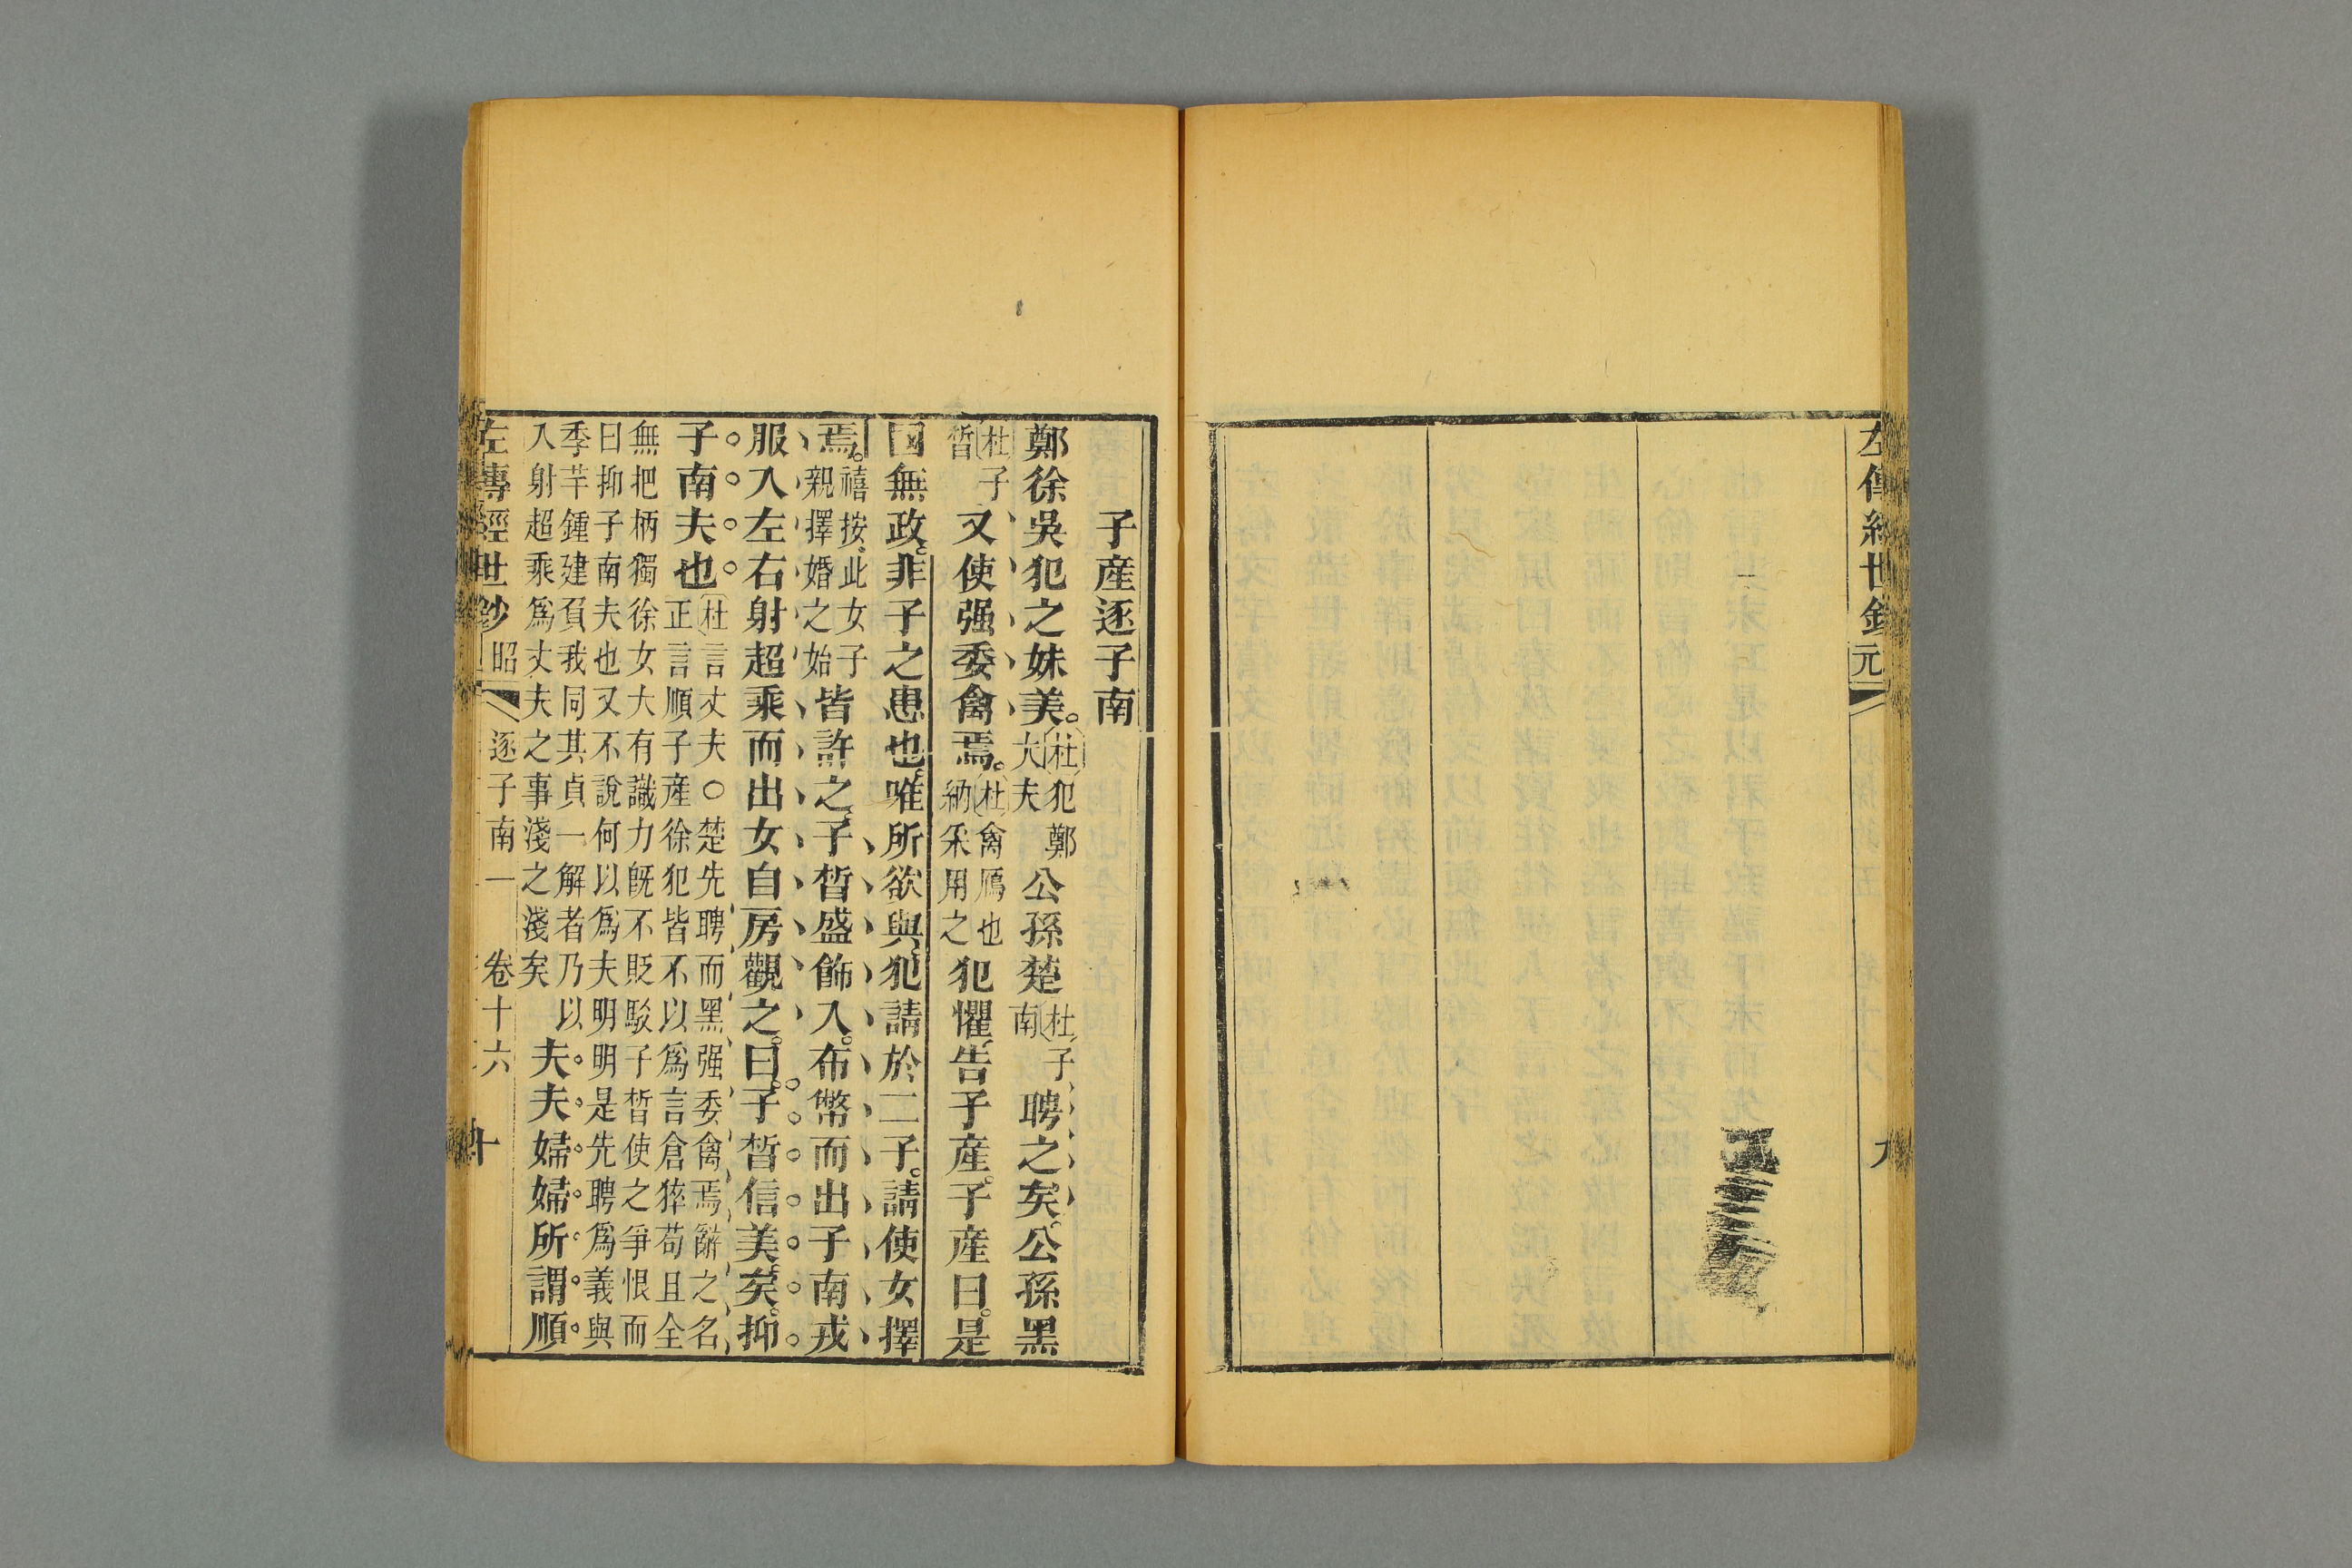 左傳經世鈔
元
子産逐子南
鄭徐吳犯之妹美。杜犯鄭大夫公孫楚杜子南聘之矣。公孫黑
杜子晳又使强委禽焉。杜禽鴈也納采用之犯懼。告子産。子産曰。是
國無政。非子之患也。唯所欲與。犯請於二子。請使女擇
焉。禧按。此女子親擇婚之始皆許之。子晳盛飾入。布幣而出子南戎
服入左右射超乘而出女自房觀之。曰。子晳信美矣。抑
子南夫也杜言丈夫○楚先聘而黑强委禽焉辭之名
正言順子産徐犯皆不以爲言倉猝苟且全
無把柄獨徐女大有識力既不貶駁子晳使之爭恨而
曰抑子南夫也又不說何以爲夫明明是先聘爲義與
季芊鍾建負我同其貞一解者乃以
入射超乘爲丈夫之事淺之淺矣夫夫婦婦所謂順
左傳經世鈔 昭 逐子南一 卷十六 十